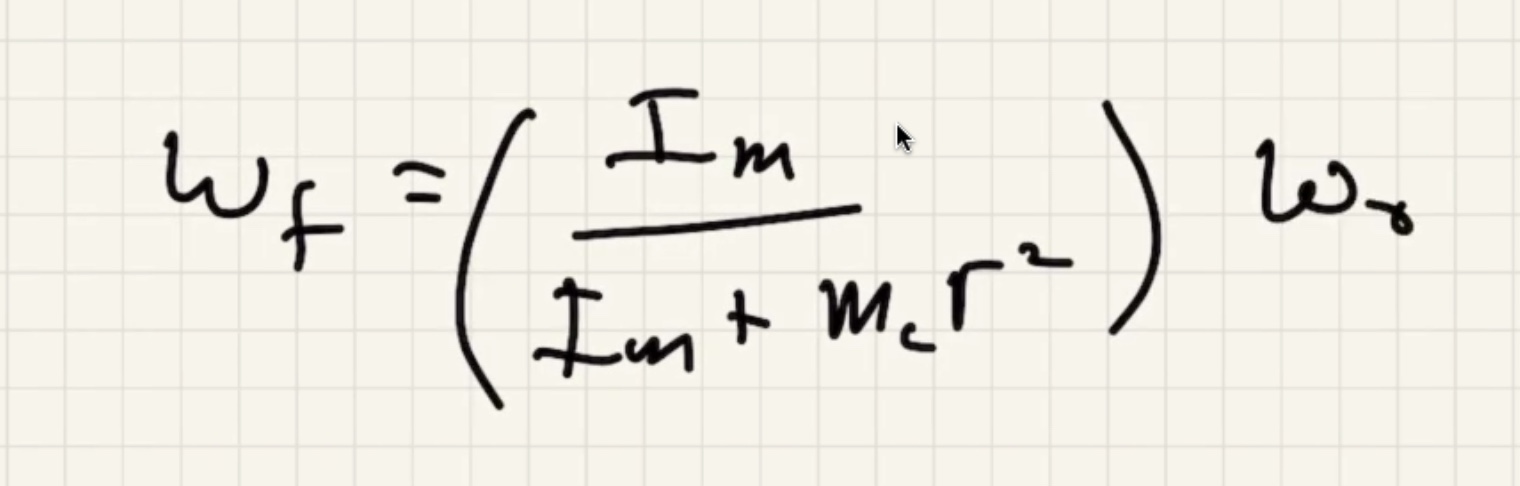 ω_f = ( I_m / (I_m + m_c r²) ) ω_0